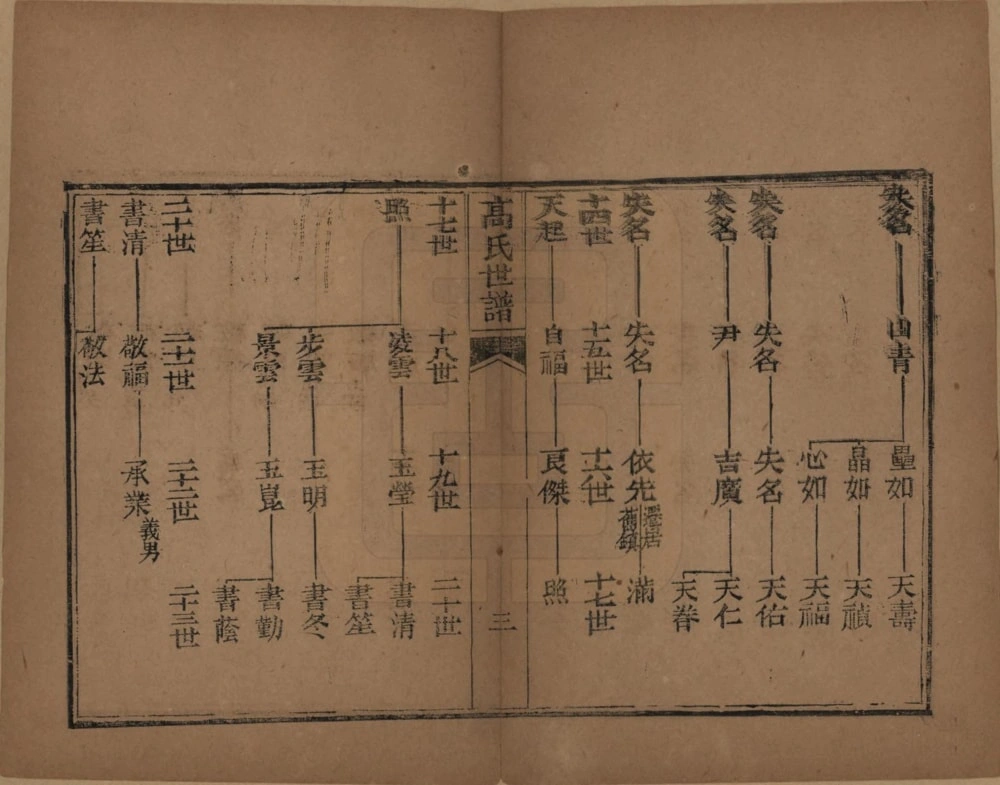 失名 由青 壘如 天壽
晶如 天禎
心如 天福
失名 失名 失名 天佑
失名 尹 吉廣 天仁
天眷
失名 失名 依先 遷居舊鎮 滿
十四世 十五世 十六世 十七世
天起 自福 良傑 照
高氏世譜 三
十七世 十八世 十九世 二十世
照 凌雲 玉瑩 書清
書笙
步雲 玉明 書冬
景雲 玉崑 書勤
書蔭
二十世 二十一世 二十二世 二十三世
書清 敬福 承業 義男
書笙 敬法